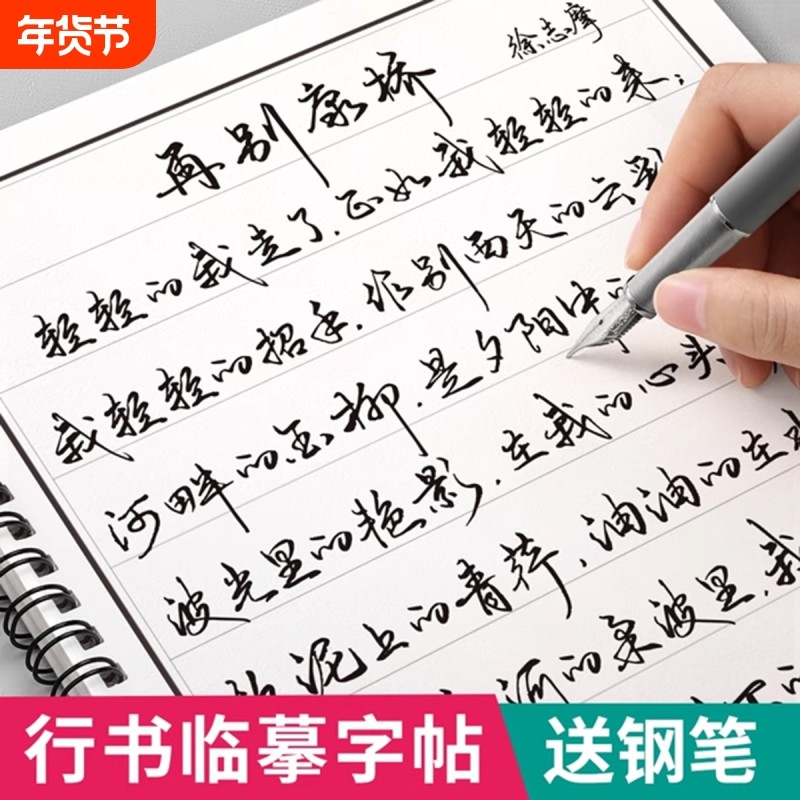 年货节
再别康桥
徐志摩
轻轻的我走了,正如我轻轻的来;
我轻轻的招手,作别西天的云
河畔的金柳,是夕阳中
波光里的艳影,在我的心头
泥上的青荇,油油的在水
河的柔波里,我
行书临摹字帖
送钢笔